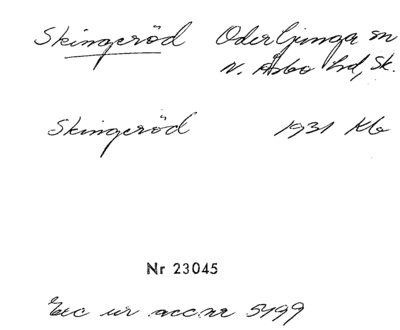 Skingeröd Oderljunga sn
N. Åsbo hd, Sk.
Skingeröd 1931 Kb
Nr 23045
Exc ur acc nr 5499